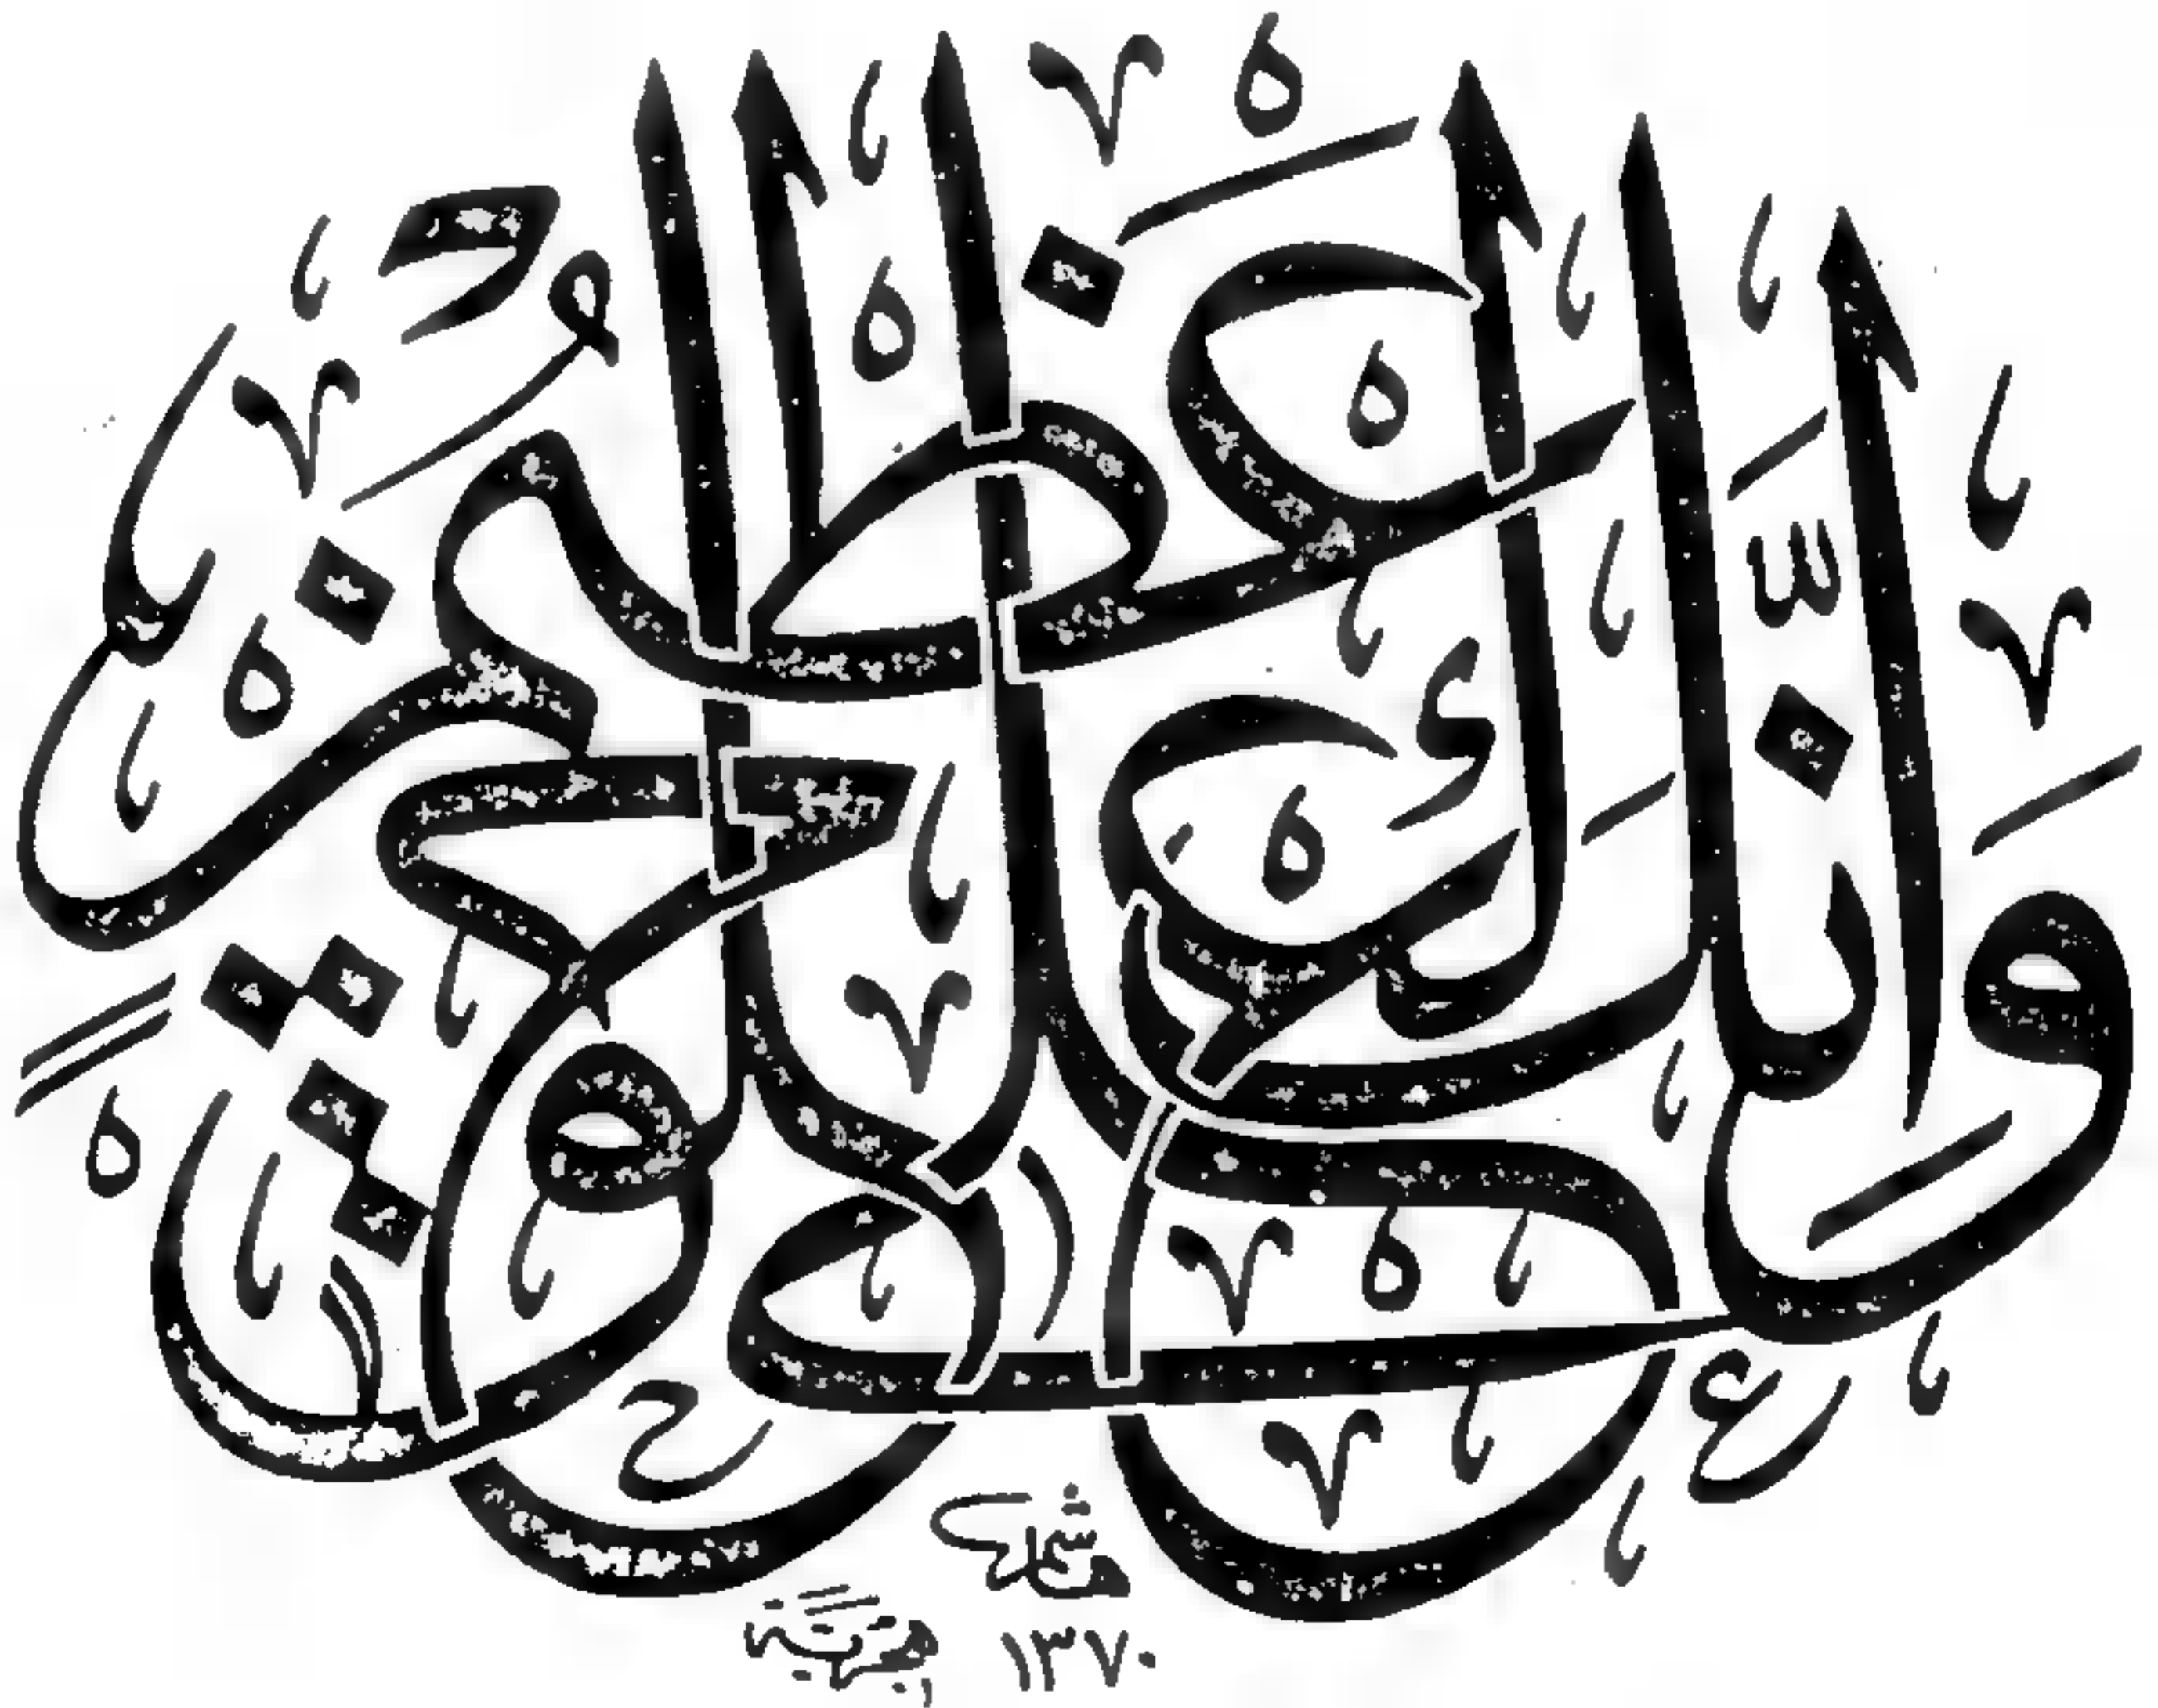 وإنك لعلى خلق عظيم
هاشم
١٣٧٠ هجرية